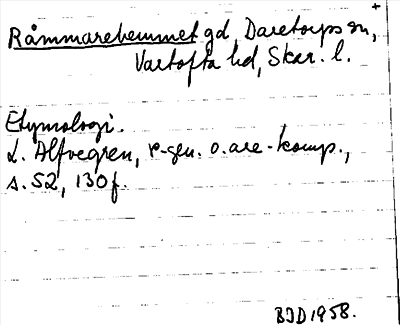 Råmmarehemmet gd, Daretorps sn,
Vartofta hd, Skar. l.
Etymologi.
L. Alfvegren, r-gen. o. are-komp.,
s. 52, 130 f.
BJD 1958.